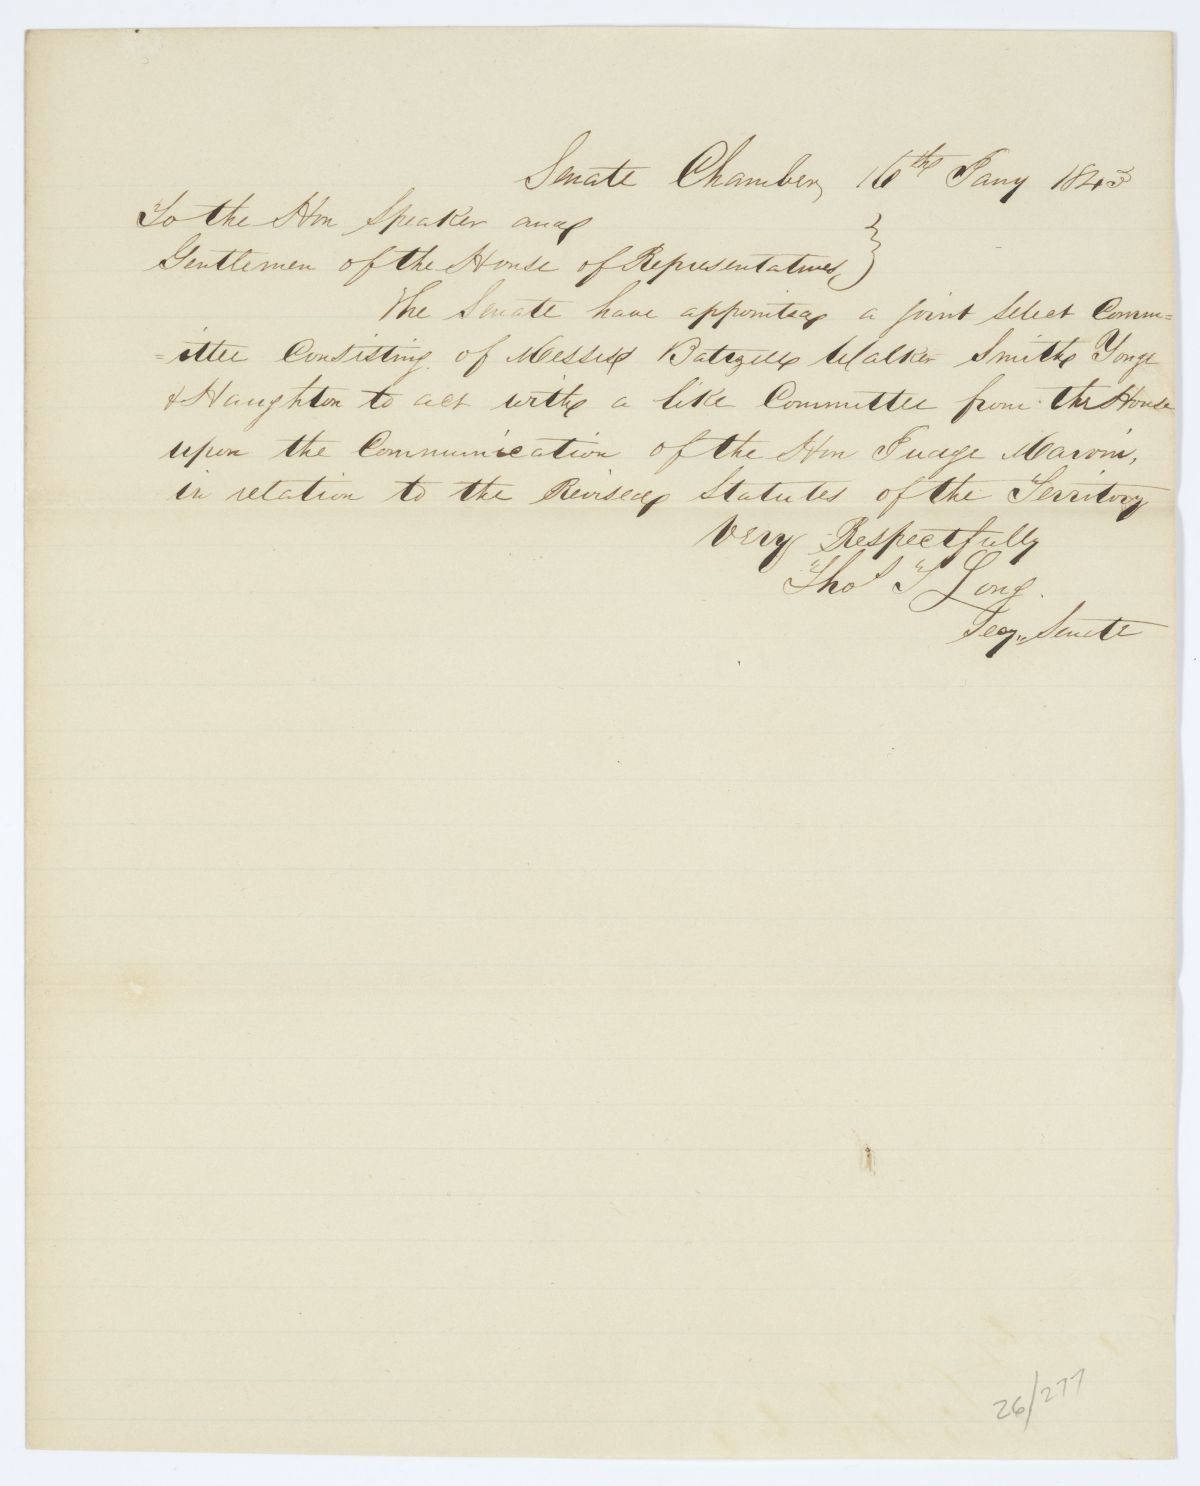 Senate Chamber, 16th Jany 1843
To the Hon Speaker and
Gentlemen of the House of Representatives, }
The Senate have appointed a joint select Comm=
=ittee Consisting of Messrs Baltzell Walker Smith Yonge
& Haughton to act with a like Committee from the House
upon the Communication of the Hon Judge Marvin,
in relation to the Revised Statutes of the Territory
Very Respectfully
Thos T Long.
Secy,, Senate
26/277